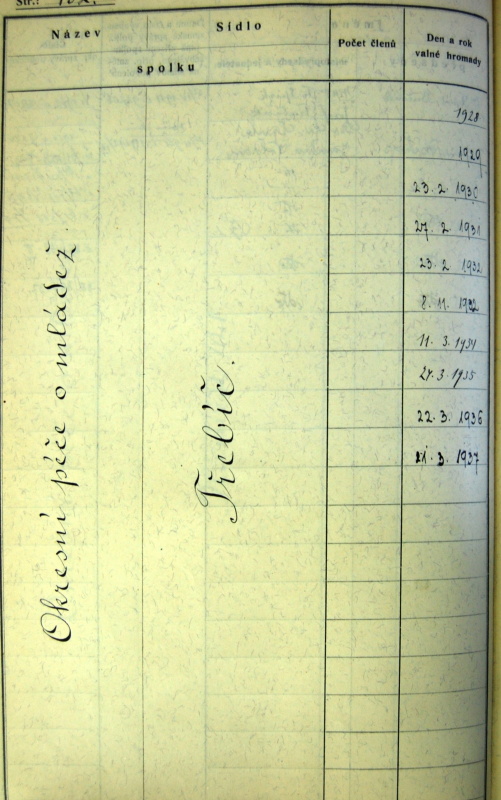 Str.:
Název
Sídlo
spolku
Počet členů
Den a rok
valné hromady
Okresní péče o mládež.
Třebíč.
1928
1929
23. 2. 1930
27. 2. 1931
23. 2. 1932
8. 11. 1932
11. 3. 1934
24. 3. 1935
22. 3. 1936
21. 3. 1937